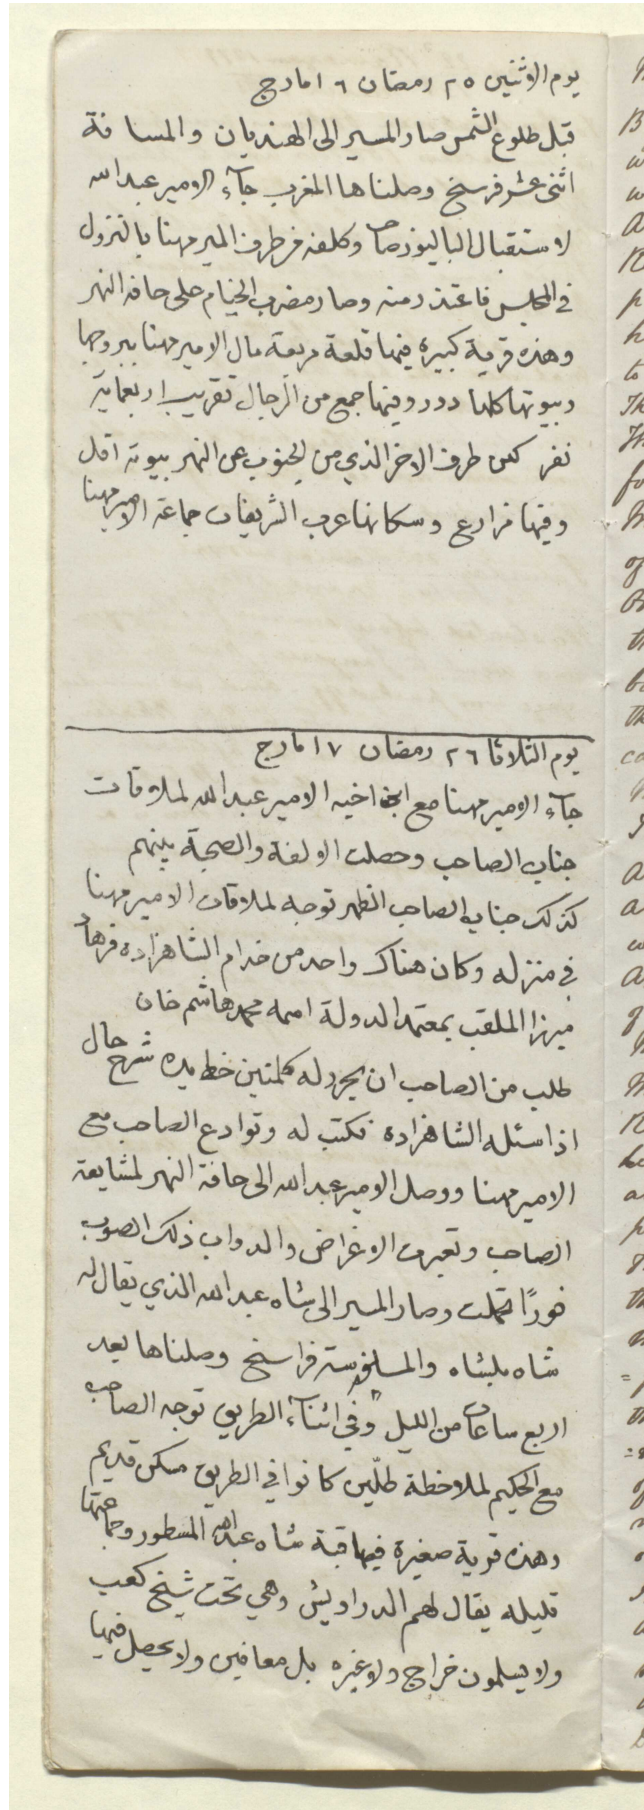 يوم الاثنين ٢٥ رمضان ١٦ مارج
قبل طلوع الشمس صار المسير الى الهنديان والمسافة
اثنى عشر فرسخ وصلناها المغرب جآء الامير عبد الله
لاستقبال الباليوز صاحب وكلفه من طرف المير مهنا بالنزول
في المجلس فاعتذر منه وصار مضرب الخيام على حافة النهر
وهذه قرية كبيرة فيها قلعة مربعة مال الامير مهنا ببروجها
وبيوتها كلها دور وفيها جمع من الرجال تقريب اربعماية
نفر كعن طرف الاخر الذي من الجنوب عن النهر بيوته اقل
وفيها مزارع وسكانها عرب الشريفات جماعة الامير مهنا
يوم الثلاثا ٢٦ رمضان ١٧ مارج
جآء الامير مهنا مع ابن اخيه الامير عبد الله لملاقات
جناب الصاحب وحصلت الالفة والصحبة بينهم
كذلك جناب الصاحب الظهر توجه لملاقات الامير مهنا
في منزله وكان هناك واحد من خدام الشاهزاده فرهاد
ميرزا الملقب بمعتمد الدولة اسمه محمد هاشم خان
طلب من الصاحب ان يحرر له كلمتين خط يده شرح حال
اذا سئله الشاهزاده فكتب له وتوادع الصاحب مع
الامير مهنا ووصل الامير عبد الله الى حافة النهر لمشايعة
الصاحب وتعبرت الاغراض والدواب ذلك الصوب
فورًا تحملت وصار المسير الى شاه عبد الله الذي يقال له
شاه ملبشاه والمسافة ستة فراسخ وصلناها بعد
اربع ساعات من الليل وفي اثنآء الطريق توجه الصاحب
مع الحكيم لملاحظة طلّين كانوا في الطريق مسكن قديم
وهذه قرية صغيرة فيها قبة شاه عبد الله المسطور وجماعتها
قليله يقال لهم الدراويش وهي تحت شيخ كعب
ولا يسلمون خراج ولا غيره بل معافين ولا يحصل فيها